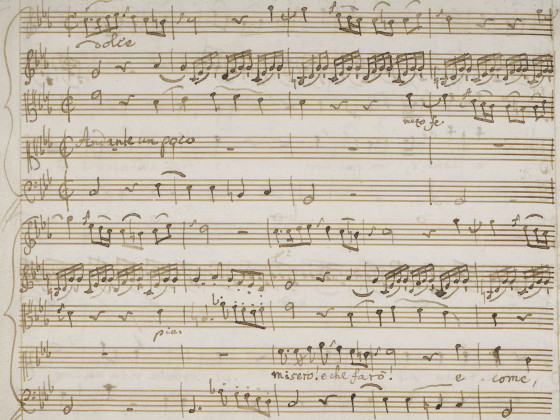 dolce
mezo fe.
Andante un poco
pia:
misero! e che farò! e come,